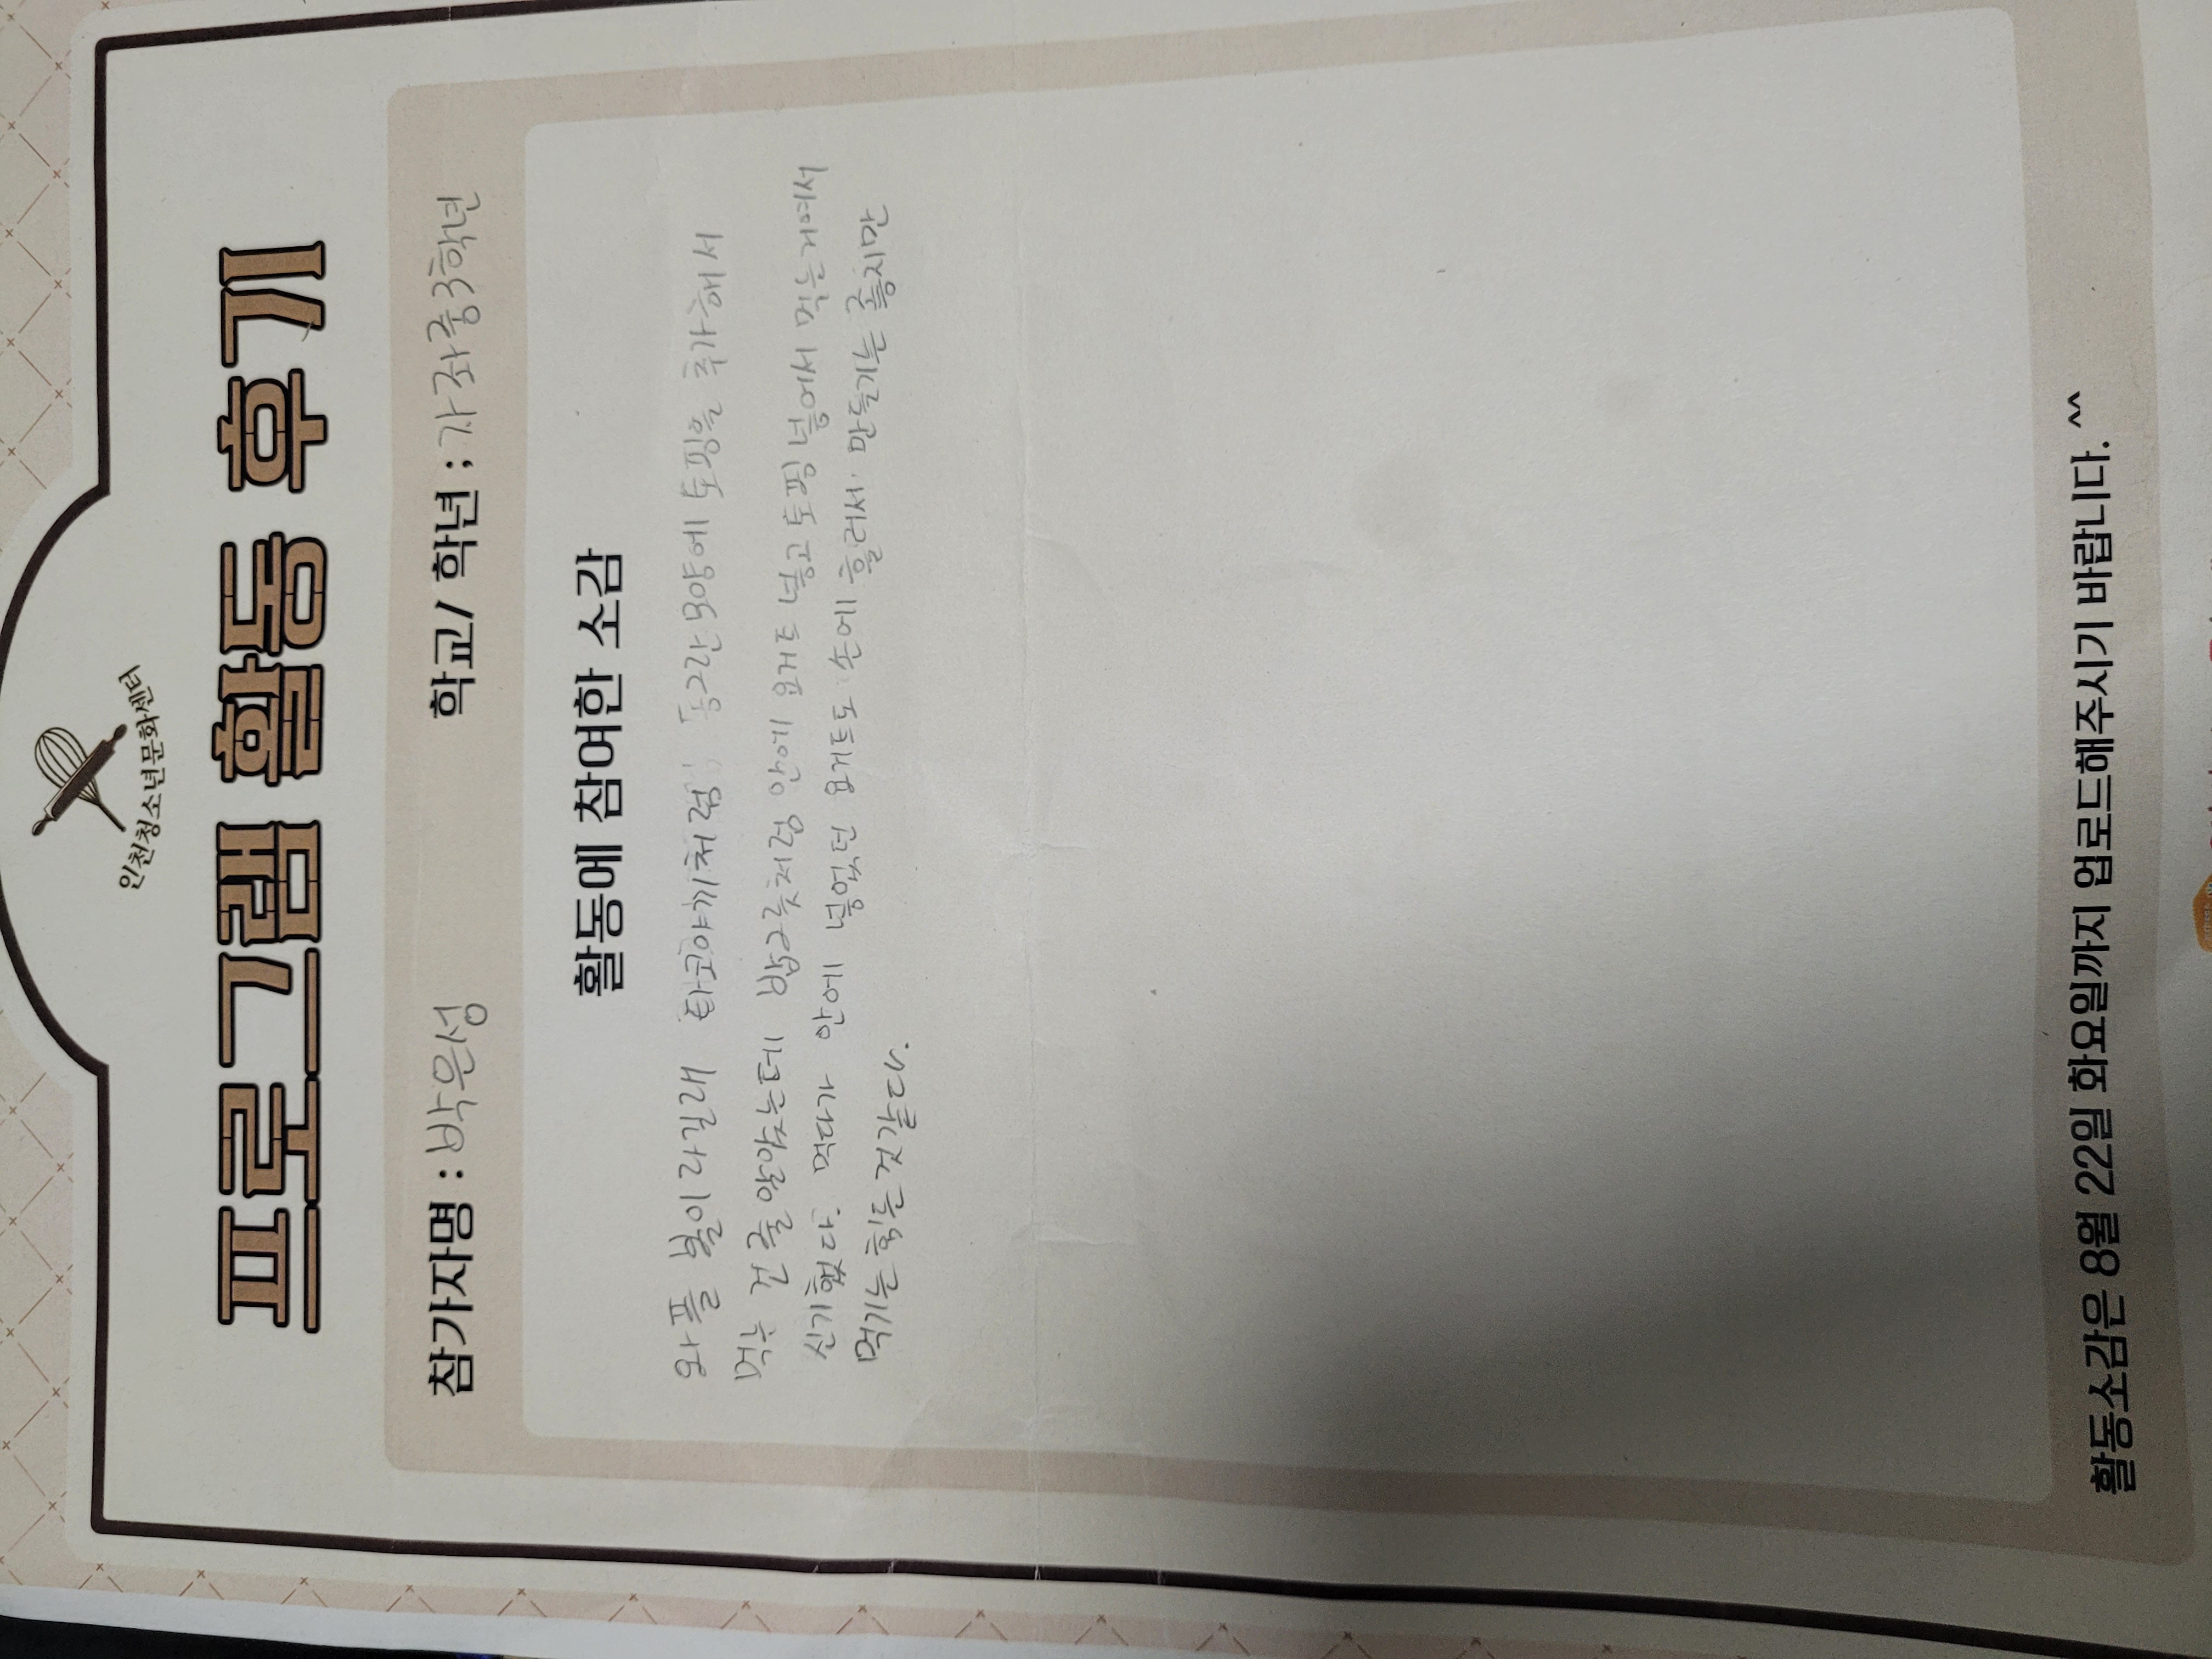 인천청소년문화센터
프로그램 활동 후기
참가자명 : 박은성 학교/ 학년 : 가좌중3학년
활동에 참여한 소감
와플 볼이라길래 타코야끼처럼 동그란모양에 토핑을 추가해서
먹는 건 줄 알았는데 밥그릇처럼 안에 요거트 넣고 토핑 넣어서 먹는거여서
신기했다. 먹다가 안에 넣었던 요거트도 손에 흘러서 만들기는 좋지만
먹기는 힘든 것 같다.
활동소감은 8월 22일 화요일까지 업로드해주시기 바랍니다. ^^